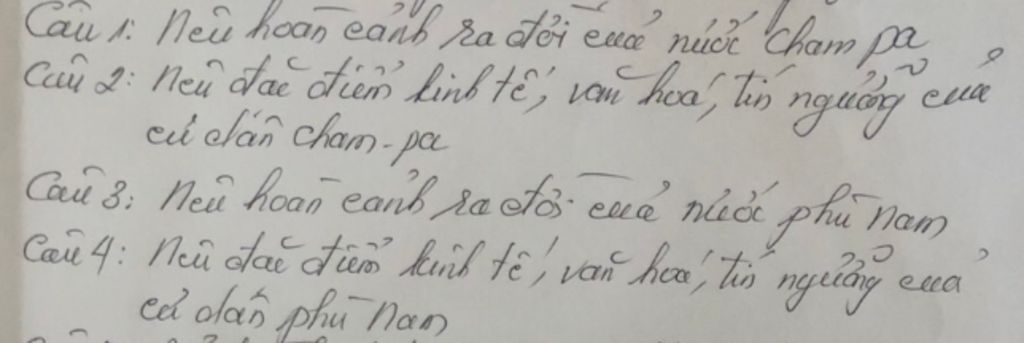 Câu 1: Nêu hoàn cảnh ra đời của nước Cham pa
Câu 2: Nêu đặc điểm kinh tế, văn hoá, tín ngưỡng của
cư dân Cham-pa
Câu 3: Nêu hoàn cảnh ra đời của nước phù nam
Câu 4: Nêu đặc điểm kinh tế, văn hoá, tín ngưỡng của
cư dân phù Nam